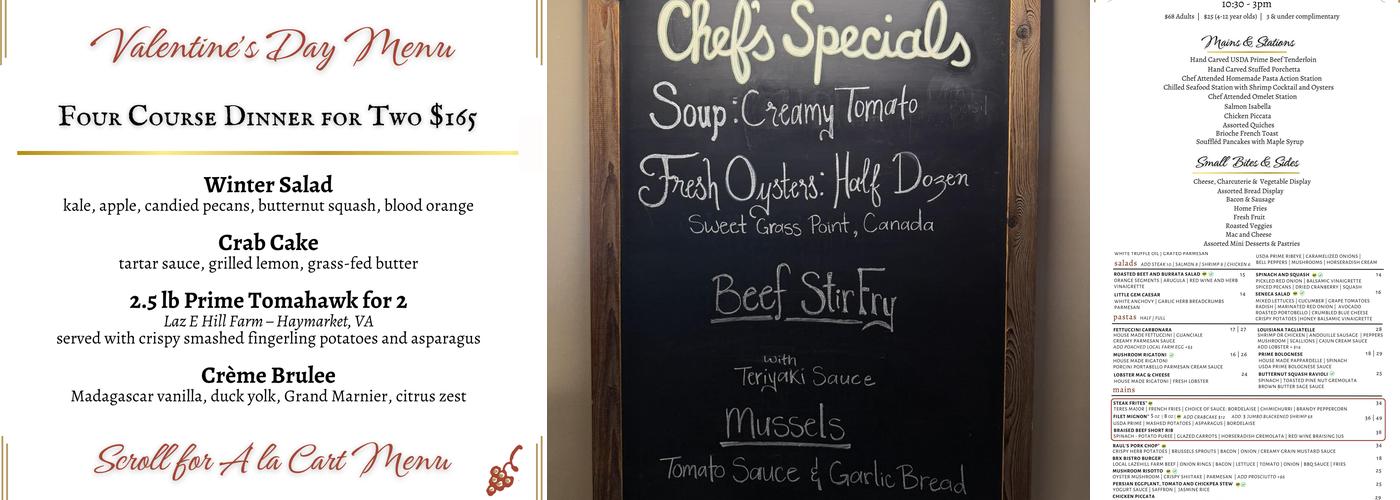 Valentine's Day Menu
Four Course Dinner for Two $165
Winter Salad
kale, apple, candied pecans, butternut squash, blood orange
Crab Cake
tartar sauce, grilled lemon, grass-fed butter
2.5 lb Prime Tomahawk for 2
Laz E Hill Farm – Haymarket, VA
served with crispy smashed fingerling potatoes and asparagus
Crème Brulee
Madagascar vanilla, duck yolk, Grand Marnier, citrus zest
Scroll for A la Cart Menu
Chef's Specials
Soup: Creamy Tomato
Fresh Oysters: Half Dozen
Sweet Grass Point, Canada
Beef StirFry
with
Teriyaki Sauce
Mussels
Tomato Sauce & Garlic Bread
10:30 - 3pm
$68 Adults | $25 (4-12 year olds) | 3 & under complimentary
Mains & Stations
Hand Carved USDA Prime Beef Tenderloin
Hand Carved Stuffed Porchetta
Chef Attended Homemade Pasta Action Station
Chilled Seafood Station with Shrimp Cocktail and Oysters
Chef Attended Omelet Station
Salmon Isabella
Chicken Piccata
Assorted Quiches
Brioche French Toast
Souffléd Pancakes with Maple Syrup
Small Bites & Sides
Cheese, Charcuterie & Vegetable Display
Assorted Bread Display
Bacon & Sausage
Home Fries
Fresh Fruit
Roasted Veggies
Mac and Cheese
Assorted Mini Desserts & Pastries
WHITE TRUFFLE OIL | GRATED PARMESAN
USDA PRIME RIBEYE | CARAMELIZED ONIONS |
BELL PEPPERS | MUSHROOMS | HORSERADISH CREAM
salads ADD STEAK 10 / SALMON 8 / SHRIMP 8 / CHICKEN 6
ROASTED BEET AND BURRATA SALAD 15
ORANGE SEGMENTS | ARUGULA | RED WINE AND HERB
VINAIGRETTE
LITTLE GEM CAESAR 14
WHITE ANCHOVY | GARLIC HERB BREADCRUMBS
PARMESAN
SPINACH AND SQUASH 14
PICKLED RED ONION | BALSAMIC VINAIGRETTE
SPICED PECANS | DRIED CRANBERRY | SQUASH
SENECA SALAD 16
MIXED LETTUCES | CUCUMBER | GRAPE TOMATOES
RADISH | MARINATED RED ONION | AVOCADO
ROASTED PORTOBELLO | CRUMBLED BLUE CHEESE
CRISPY POTATOES |HONEY BALSAMIC VINAIGRETTE
pastas HALF / FULL
FETTUCCINI CARBONARA 17 | 27
HOUSE MADE FETTUCCINI | GUANCIALE
CREAMY PARMESAN SAUCE
ADD POACHED LOCAL FARM EGG +$3
MUSHROOM RIGATONI 16 | 26
HOUSE MADE RIGATONI
PORCINI PORTABELLO PARMESAN CREAM SAUCE
LOBSTER MAC & CHEESE 24
HOUSE MADE RIGATONI | FRESH LOBSTER
LOUISIANA TAGLIATELLE 28
SHRIMP OR CHICKEN | ANDOUILLE SAUSAGE | PEPPERS
MUSHROOM | SCALLIONS | CAJUN CREAM SAUCE
ADD LOBSTER + $14
PRIME BOLOGNESE 18 | 29
HOUSE MADE PAPPARDELLE | SPINACH
USDA PRIME BOLOGNESE SAUCE
BUTTERNUT SQUASH RAVIOLI 25
SPINACH | TOASTED PINE NUT GREMOLATA
BROWN BUTTER SAGE SAUCE
mains
STEAK FRITES* 34
TERES MAJOR | FRENCH FRIES | CHOICE OF SAUCE: BORDELAISE | CHIMICHURRI | BRANDY PEPPERCORN
FILET MIGNON* 5 oz | 8 oz ADD CRABCAKE $12 ADD 3 JUMBO BLACKENED SHRIMP $8 36 | 49
USDA PRIME | MASHED POTATOES | ASPARAGUS | BORDELAISE
BRAISED BEEF SHORT RIB 38
SPINACH - POTATO PUREE | GLAZED CARROTS | HORSERADISH CREMOLATA | RED WINE BRAISING JUS
RAUL'S PORK CHOP* 34
CRISPY HERB POTATOES | BRUSSELS SPROUTS | BACON | ONION / CREAMY GRAIN MUSTARD SAUCE
BRX BISTRO BURGER* 18
LOCAL LAZEHILL FARM BEEF | ONION RINGS | BACON | LETTUCE | TOMATO | ONION | BBQ SAUCE | FRIES
MUSHROOM RISOTTO 25
OYSTER MUSHROOM | CRISPY SHIITAKE | PARMESAN | ADD PROSCIUTTO +$6
PERSIAN EGGPLANT, TOMATO AND CHICKPEA STEW 25
YOGURT SAUCE | SAFFRON | JASMINE RICE
CHICKEN PICCATA 29